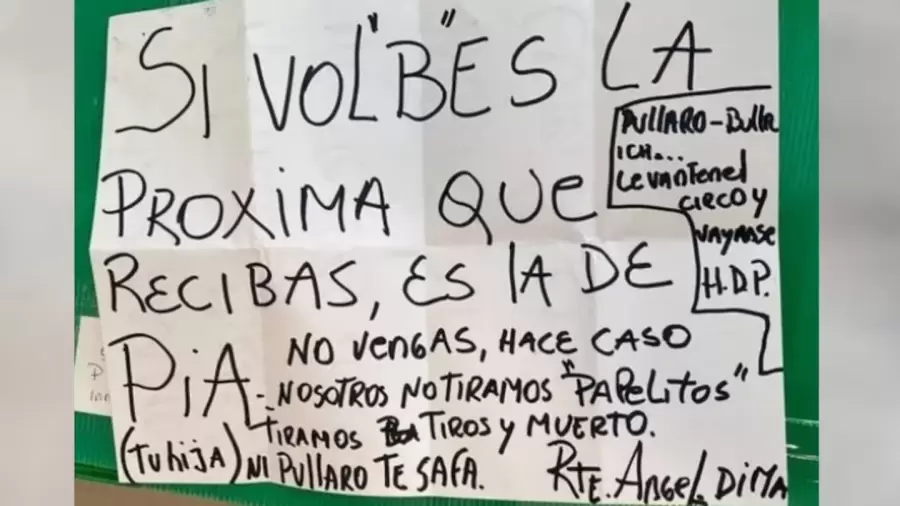 SI VOL"B"ES LA
PROXIMA QUE
RECIBAS, ES LA DE
PIA.-
(tu hija)
NO VENGAS, HACE CASO
NOSOTROS NO TIRAMOS "PAPELITOS"
TIRAMOS TIROS Y MUERTO.
NI PULLARO TE SAFA.
RTE. ANGEL DIMA
PULLARO-Bullr
ICH...
Levanten el
CIRCO Y
VAYANSE
H.D.P.